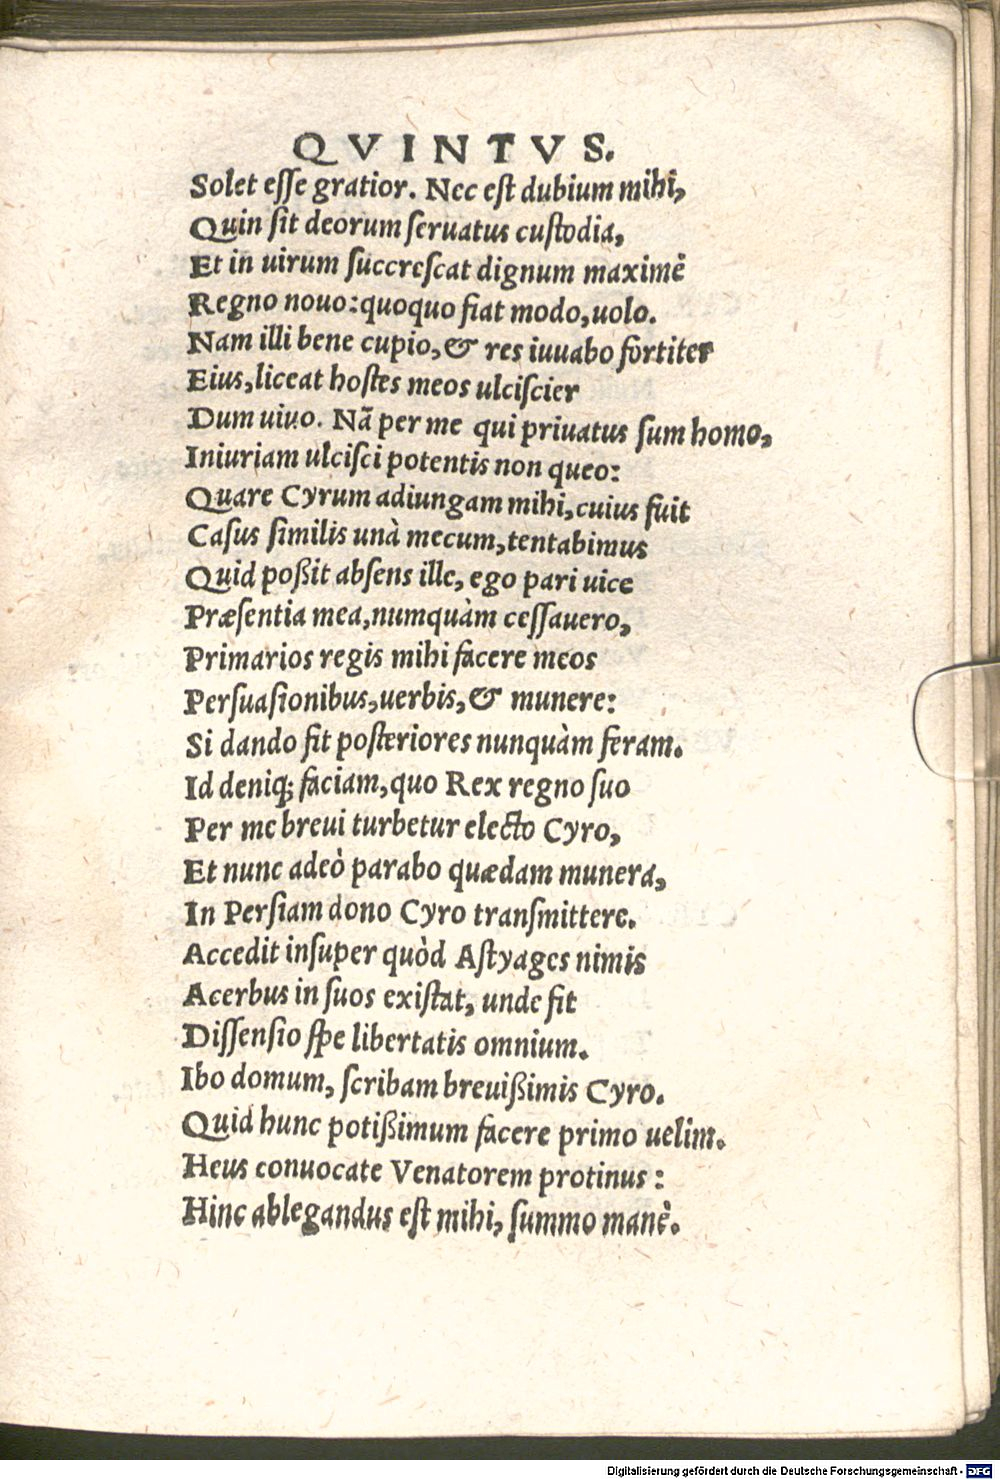 QVINTVS.
Solet esse gratior. Nec est dubium mihi,
Quin sit deorum seruatus custodia,
Et in uirum succrescat dignum maximè
Regno nouo: quoquo fiat modo, uolo.
Nam illi bene cupio, & res iuuabo fortiter
Eius, liceat hostes meos ulciscier
Dum uiuo. Nã per me qui priuatus sum homo,
Iniuriam ulcisci potentis non queo:
Quare Cyrum adiungam mihi, cuius fuit
Casus similis unà mecum, tentabimus
Quid poßit absens ille, ego pari uice
Præsentia mea, numquàm cessauero,
Primarios regis mihi facere meos
Persuasionibus, uerbis, & munere:
Si dando fit posteriores nunquàm feram.
Id deniq; faciam, quo Rex regno suo
Per me breui turbetur electo Cyro,
Et nunc adeò parabo quædam munera,
In Persiam dono Cyro transmittere.
Accedit insuper quòd Astyages nimis
Acerbus in suos existat, unde fit
Dissensio spe libertatis omnium.
Ibo domum, scribam breuißimis Cyro.
Quid hunc potißimum facere primo uelim.
Heus conuocate Venatorem protinus:
Hinc ablegandus est mihi, summo manè.
Digitalisierung gefördert durch die Deutsche Forschungsgemeinschaft - DFG